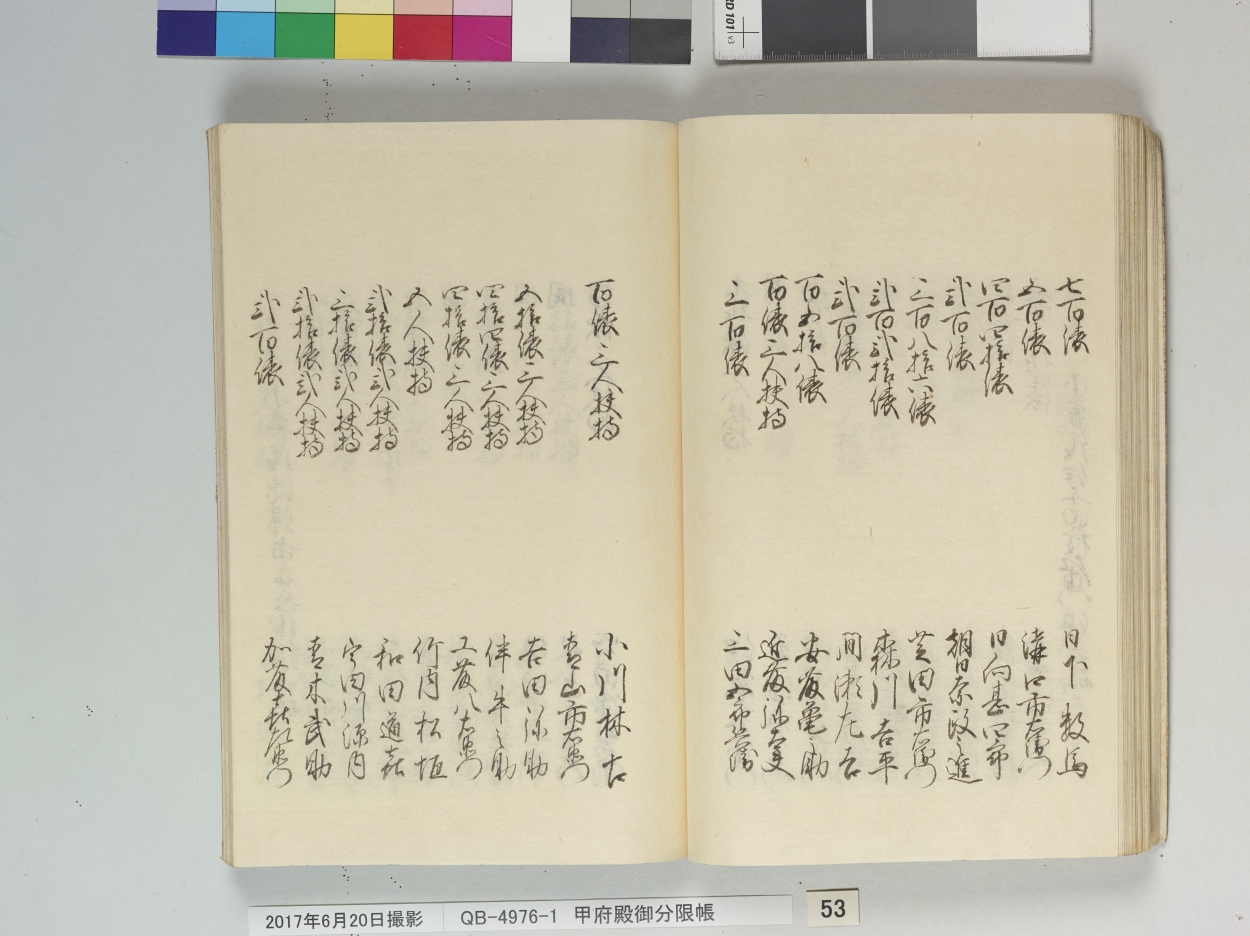 七百俵 日下数馬
五百俵 溝口市左衛門
四百四拾俵 日向甚四郎
弐百俵 朝日奈政之進
三百八拾六俵 芝田市左衛門
弐百弐拾俵 森川吉平
弐百俵 間瀬左吉
百五拾八俵 安藤亀之助
百俵三人扶持 近藤源太夫
三百俵 三田五郎兵衛
百俵三人扶持 小川林
青山市左衛門
五拾俵三人扶持 吉田源助
四拾四俵三人扶持 伴牛之助
四拾俵三人扶持 工藤八右衛門
五人扶持 竹内松
弐拾俵弐人扶持 和田道喜
三拾俵弐人扶持 宇田川源内
弐拾俵弐人扶持 青木武助
弐百俵 加藤喜左衛門
2017年6月20日撮影 QB-4976-1 甲府殿御分限帳 53